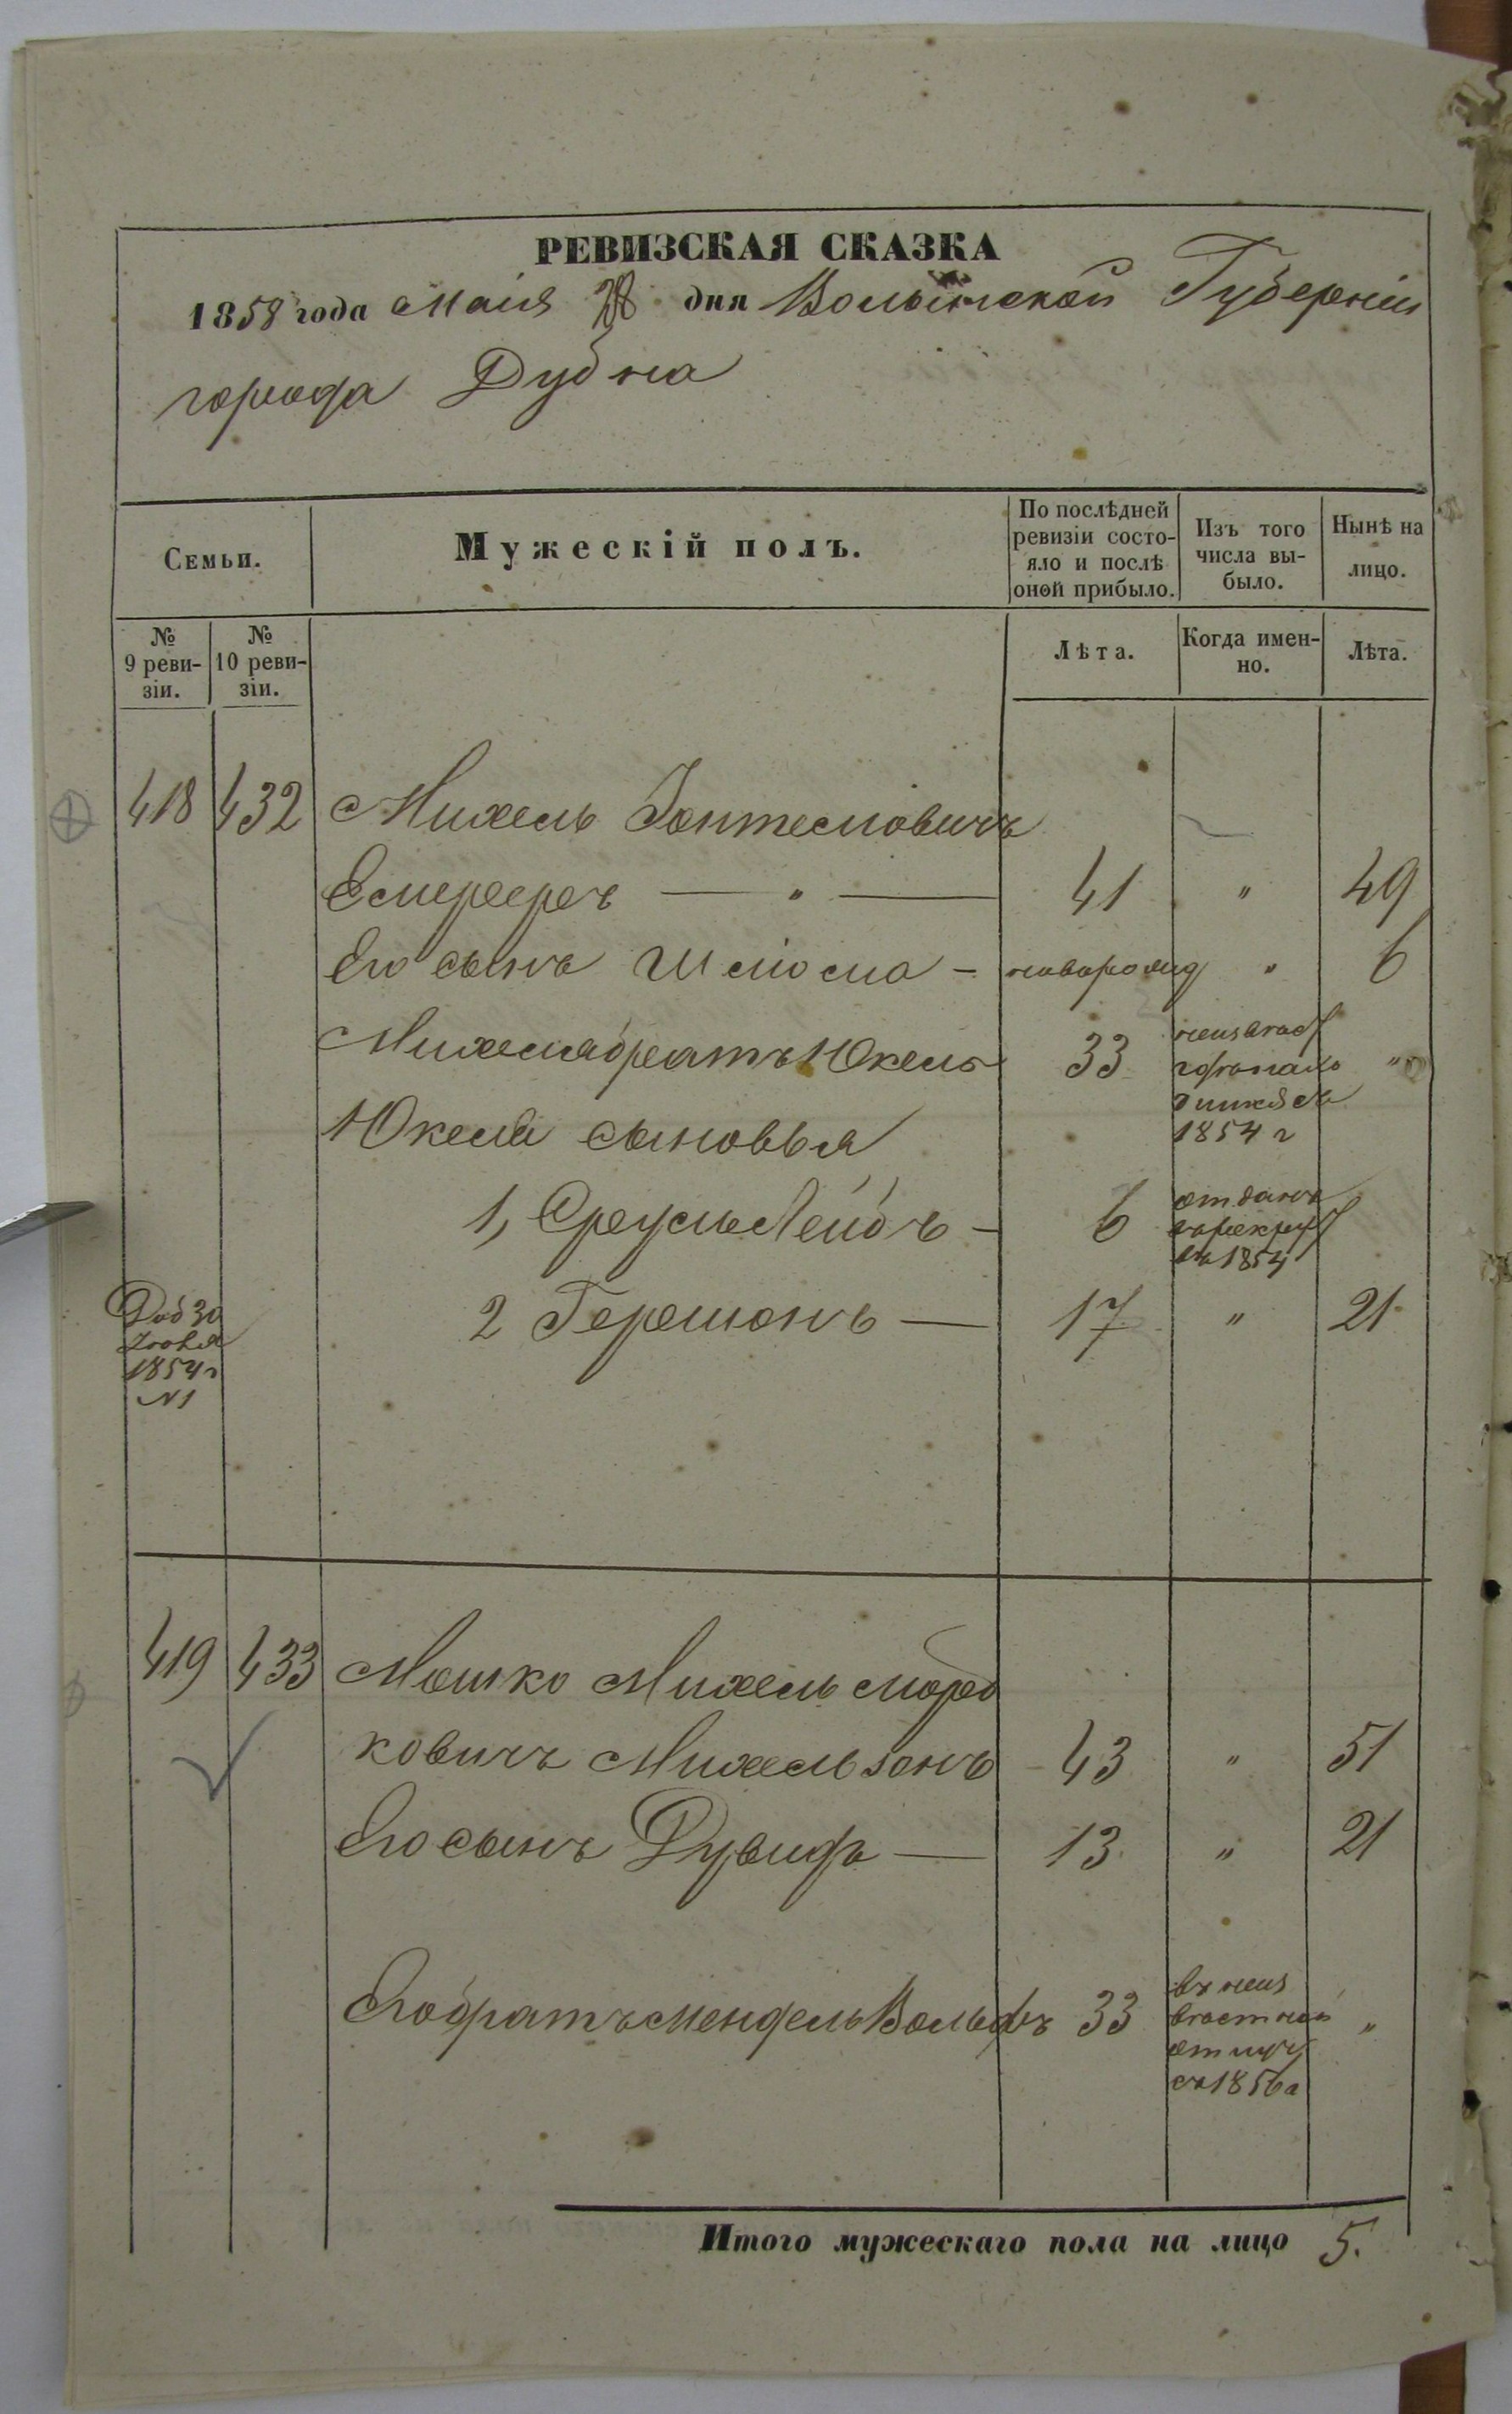 РЕВИЗСКАЯ СКАЗКА
1858 года Маія 28 дня Волынской Губерніи
города Дубна
Семьи.
Мужескій полъ.
По послѣдней ревизіи состо-
яло и послѣ оной прибыло.
Изъ того числа вы-
было.
Нынѣ на лицо.
№ 9 реви-
зіи.
№ 10 реви-
зіи.
Лѣта.
Когда имен-
но.
Лѣта.
418 432 Михель
41 " 49
Его сынъ Шлiома - новорожд " 6
Михеля братъ Юкель 33 "
1854 г
Юкеля сыновья
1, Сруль Лейбъ - 6 отданъ
въ рекрут
въ 1854
Доб 30
1854 г
№ 1
2 Гершонъ — 17 " 21
419 433 Мошко Михель Морд
ковичъ Михельзонъ 43 " 51
Его сынъ Дувидъ — 13 " 21
Его братъ Мендель Вольфъ 33 въ неиз
вѣстной
отлуч
съ 1856 г
"
Итого мужескаго пола на лицо 5.